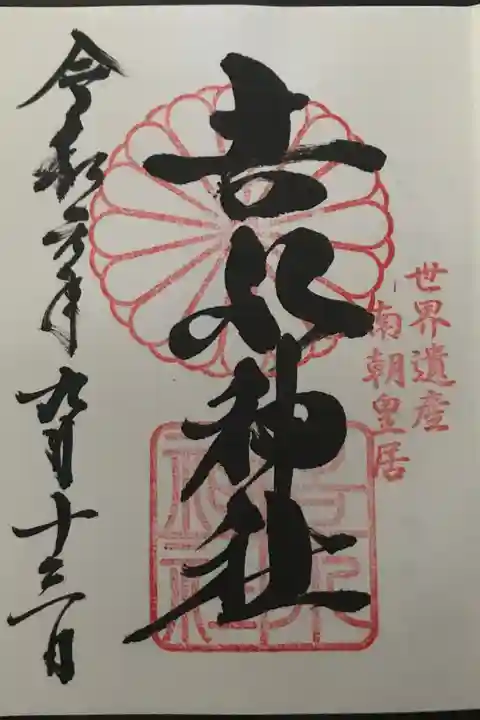 世界遺産
南朝皇居
吉水神社
令和元年九月十三日